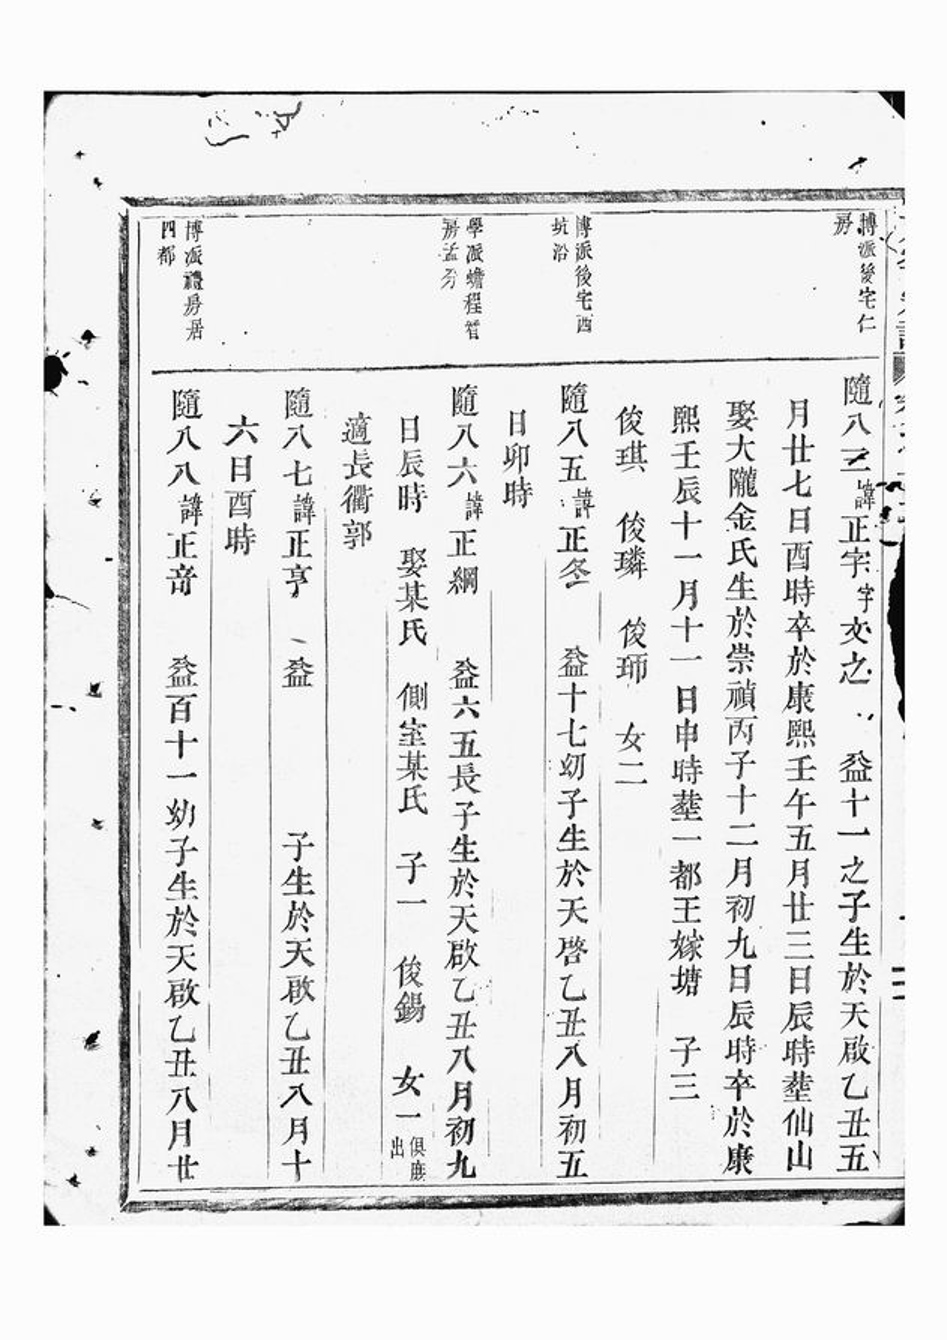 博派後宅仁
房
隨八三諱正字字文之 益十一之子生於天啟乙丑五
月廿七日酉時卒於康熙壬午五月廿三日辰時塟仙山
娶大隴金氏生於崇禎丙子十二月初九日辰時卒於康
熙壬辰十一月十一日申時塟一都王嫁塘 子三
俊琪 俊璘 俊珋 女二
博派後宅西
坑沿
隨八五諱正冬 益十七幼子生於天啓乙丑八月初五
日卯時
學派蟾程管
房孟分
隨八六諱正綱 益六五長子生於天啟乙丑八月初九
日辰時 娶某氏 側室某氏 子一 俊錫 女一俱庶出
適長衢郭
隨八七諱正亨 益 子生於天啟乙丑八月十
六日酉時
博派禮房居
四都
隨八八諱正竒 益百十一幼子生於天啟乙丑八月廿